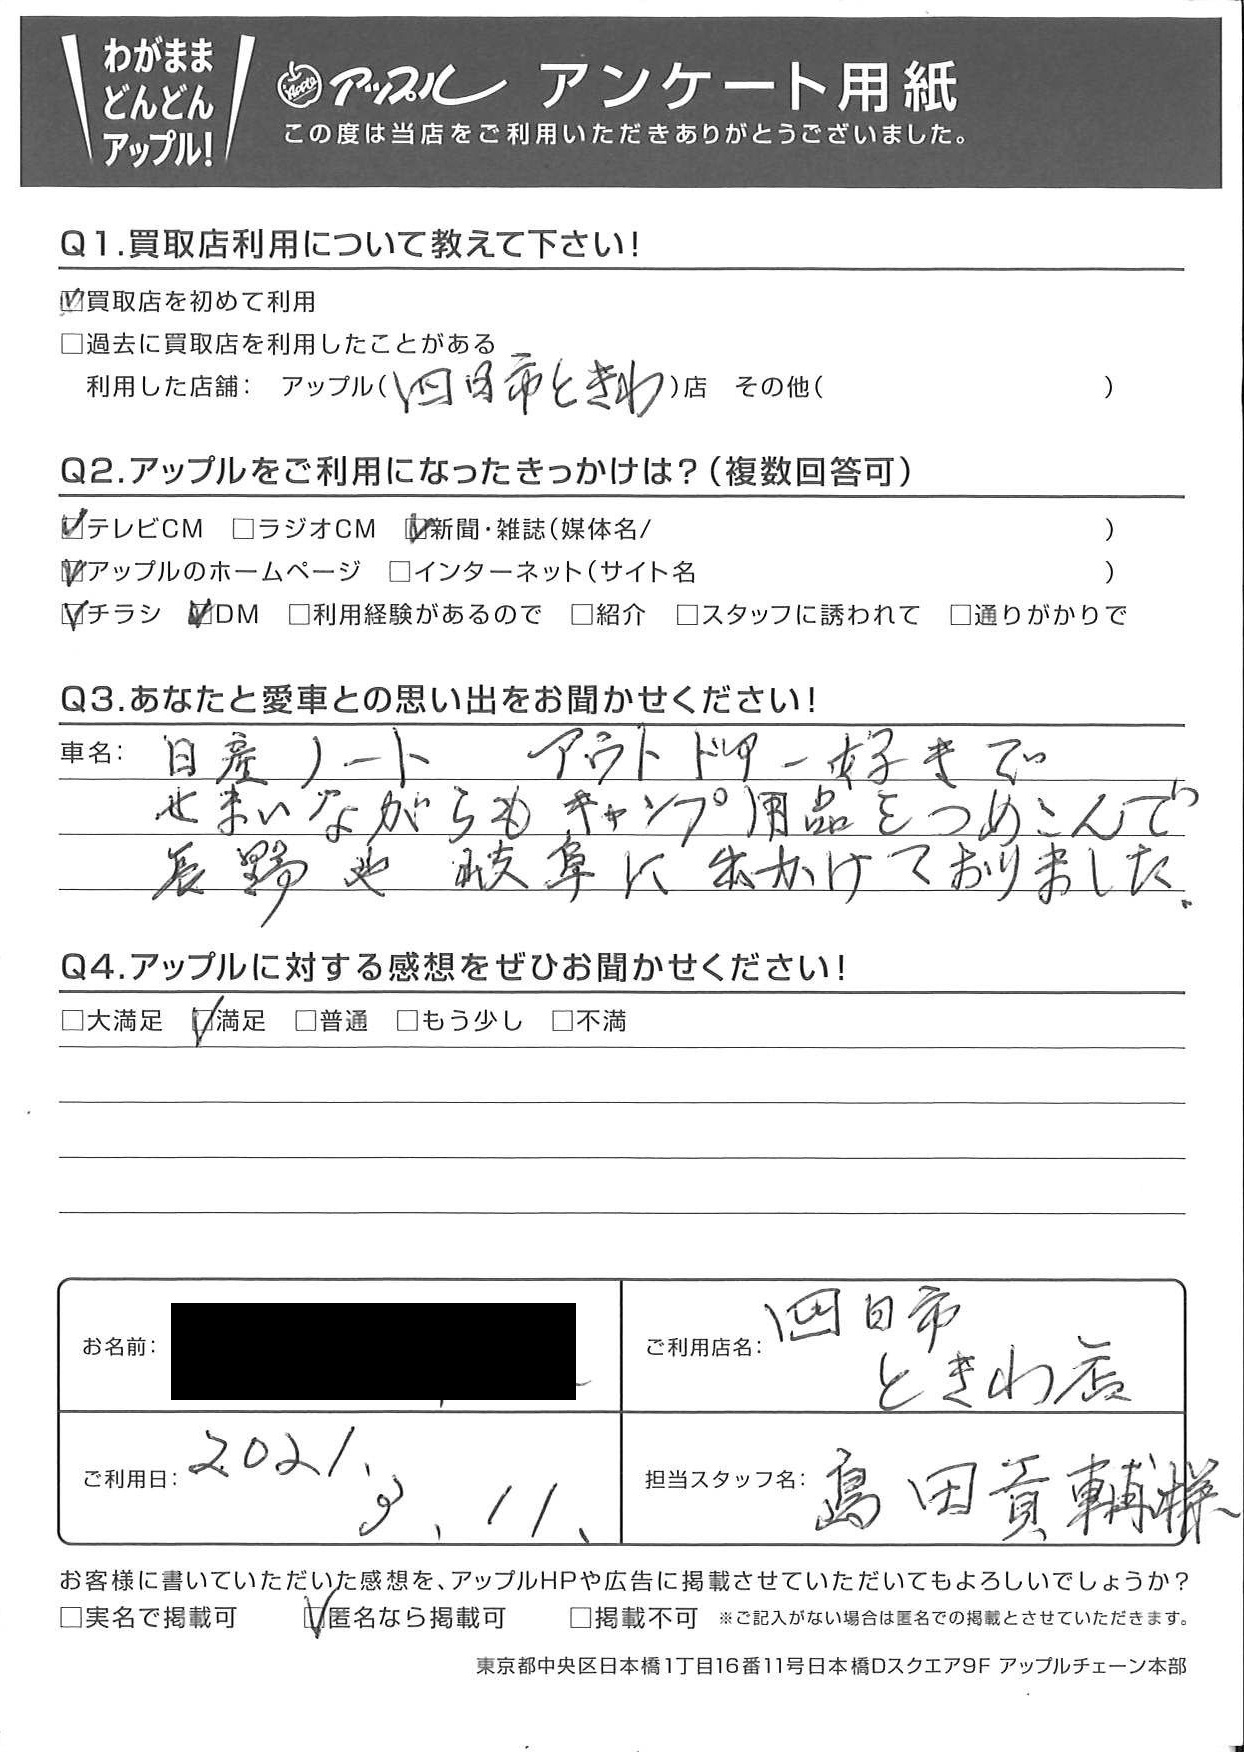 わがまま
どんどん
アップル!
Apple アップル アンケート用紙
この度は当店をご利用いただきありがとうございました。
Q1.買取店利用について教えて下さい!
☑買取店を初めて利用
□過去に買取店を利用したことがある
利用した店舗: アップル(四日市ときわ)店 その他( )
Q2.アップルをご利用になったきっかけは?(複数回答可)
☑テレビCM □ラジオCM ☑新聞・雑誌(媒体名/ )
☑アップルのホームページ □インターネット(サイト名 )
☑チラシ ☑DM □利用経験があるので □紹介 □スタッフに誘われて □通りがかりで
Q3.あなたと愛車との思い出をお聞かせください!
車名: 日産ノート アウトドアー好きで
せまいながらもキャンプ用品をつめこんで
長野や岐阜に出かけておりました.
Q4.アップルに対する感想をぜひお聞かせください!
□大満足 ☑満足 □普通 □もう少し □不満
お名前:
ご利用店名: 四日市
ときわ店
ご利用日: 2021.
3.11.
担当スタッフ名: 島田貢輔様
お客様に書いていただいた感想を、アップルHPや広告に掲載させていただいてもよろしいでしょうか?
□実名で掲載可 ☑匿名なら掲載可 □掲載不可 ※ご記入がない場合は匿名での掲載とさせていただきます。
東京都中央区日本橋1丁目16番11号日本橋Dスクエア9F アップルチェーン本部